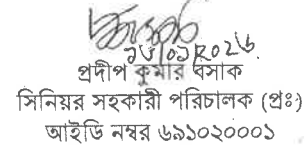 প্রদীপ কুমার বসাক
সিনিয়র সহকারী পরিচালক (প্রঃ)
আইডি নম্বর ৬৯১০২০০০১